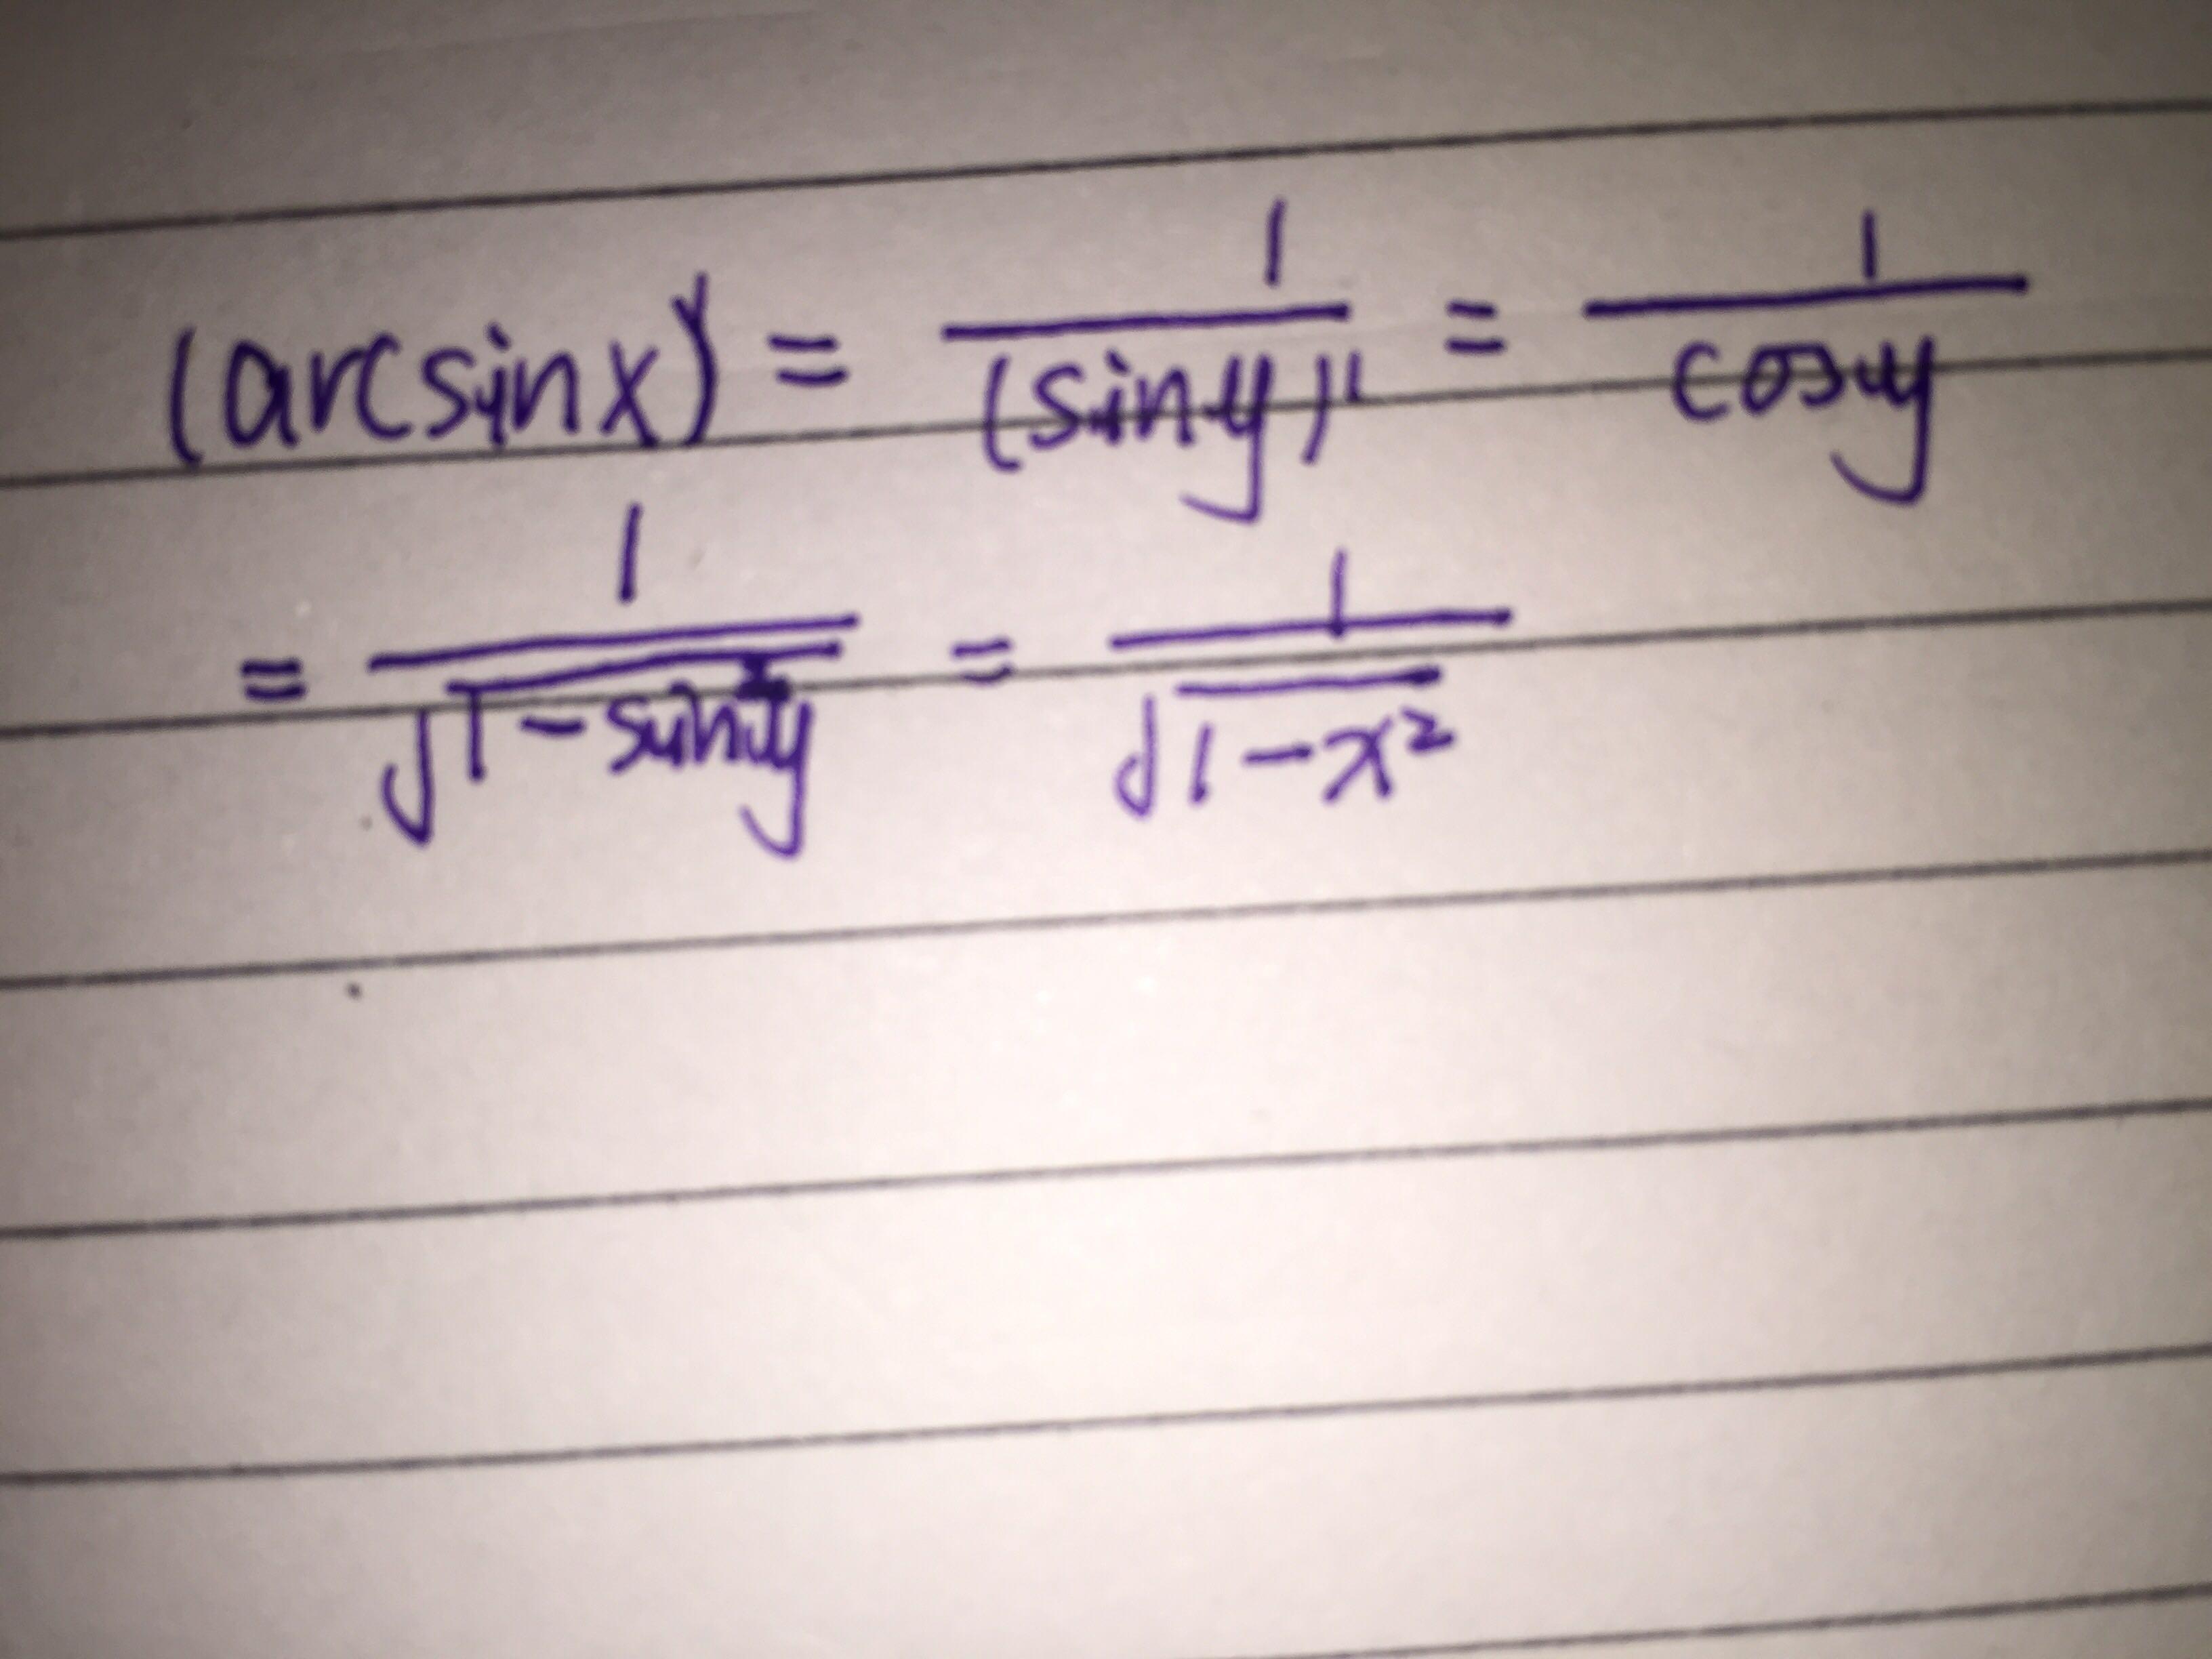 (arcsinx)' = 1/(siny)' = 1/cosy
= 1/√(1-sin²y) = 1/√(1-x²)